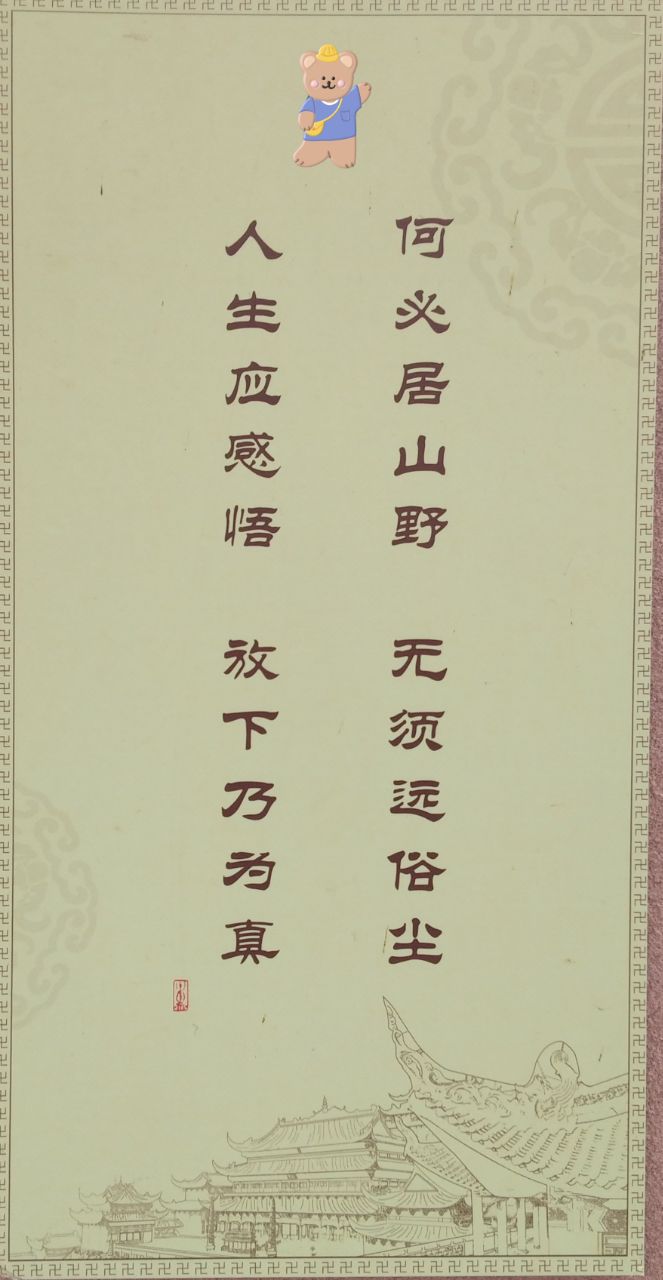 何必居山野 无须远俗尘
人生应感悟 放下乃为真